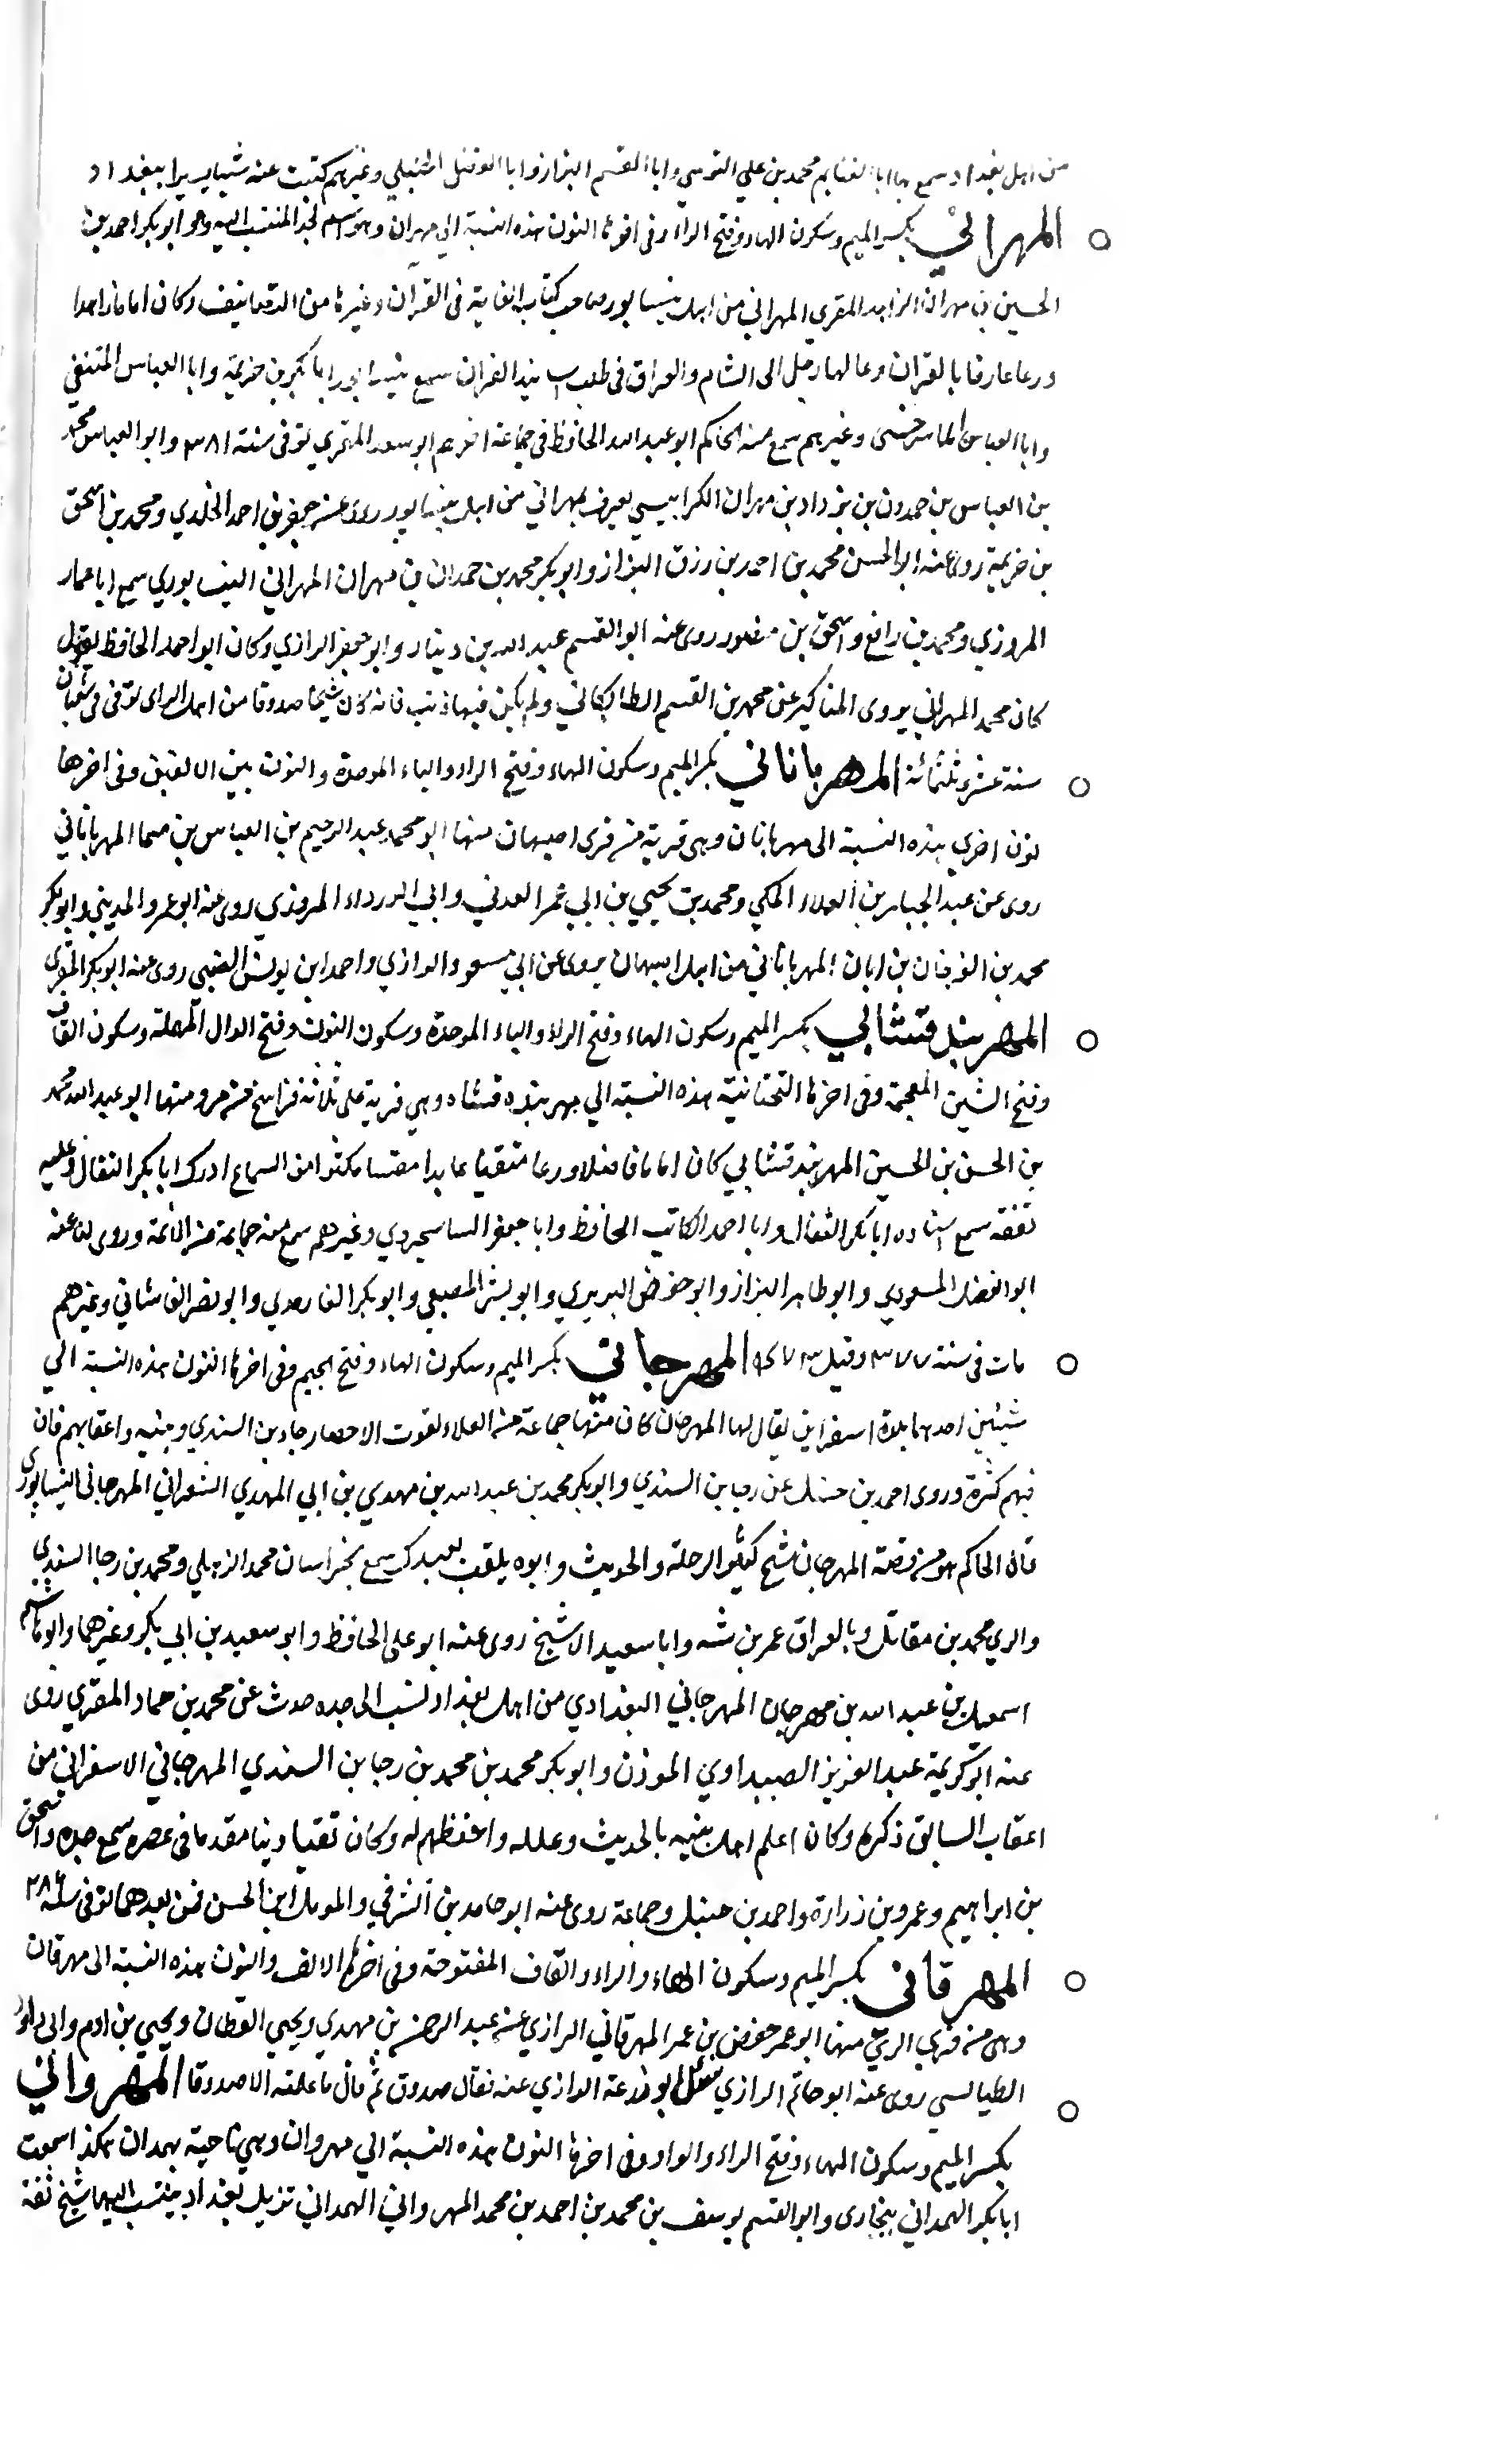 من اهل بغداد سمع بها ابا الغنايم محمد بن علي النرسي وابا القسم البزاز وابا الوفا الحنبلي وغيرهم كتبت عنه شيا يسيرا ببغداد
المهراني بكسر الميم وسكون الهاء وفتح الراء وفى اخرها النون هذه النسبة الي مهران وهو اسم لجد المنتسب اليه وهو ابو بكر احمد بن
الحسين بن مهران الزاهد المقري المهراني من اهل نيسابور صاحب كتاب الغاية فى القرآن وغيرها من التصانيف وكان اماما زاهدا
ورعا عارفا بالقران وعالما رحل الى الشام والعراق فى طلب اسانيد القران سمع نيسابور ابا بكر بن خزيمة وابا العباس الثقفي
وابا العباس الماسرجسى وغيرهم سمع منه الحاكم ابو عبد الله الحافظ فى جماعة اخرهم ابو سعد المقري توفى سنة ٣٨١ وابو العباس محمد
بن العباس بن حمدون بن يزداد بن مهران الكرابيسي يعرف بمهراني من اهل نيسابور روى عنه جعفر بن احمد الخلدي ومحمد بن اسحق
بن خزيمة روى عنه ابو الحسن محمد بن احمد بن رزق البزاز وابو بكر محمد بن حمدان بن مهران المهراني النيسابوري سمع ابا عمار
المروزي ومحمد بن رافع واسحق بن منصور روى عنه ابو القسم عبد الله بن دينار وابو جعفر الرازي وكان ابو احمد الحافظ يقول
كان محمد المهراني يروى المناكير عن محمد بن القسم الطالكاني ولم يكن فيها ذنب فانه كان شيخا صدوقا من اهل الراى توفى فى شعبان
سنة عشر وثلثمائة المهرباناني بكسر الميم وسكون الهاء وفتح الراء والباء الموحدة والنون بين الالفين وفى اخرها
نون اخري هذه النسبة الى مهربانان وهى قرية من قرى اصبهان منها ابو محمد عبد الرحيم بن العباس بن صما المهرباناني
روى عن عبد الجبار بن العلاء المكي ومحمد بن يحيي بن ابي عمر العدني وابي الدرداء المروزي روى عنه ابو عمرو المديني وابو بكر
محمد بن الفرخان بن ابان المهرباناني من اهل اصبهان يروى عن ابي مسعود الرازي واحمد ابن يونس الضبي روى عنه ابو بكر المقرى
المهربندقشائي بكسر الميم وسكون الهاء وفتح الراء والباء الموحدة وسكون النون وفتح الدال المهملة وسكون القاف
وفتح الشين المعجمة وفى اخرها التحتانية هذه النسبة الي مهربندقشاه وهي قرية على ثلاثة فراسخ من مرو منها ابو عبد الله محمد
بن الحسن بن الحسين المهربندقشايي كان اماما فاضلا ورعا متقيا عابدا مفتيا مكثرا من السماع ادرك ابا بكر القفال وعليه
تفقه سمع استاذه ابا بكر القفال وابا احمد الكاتب الحافظ وابا جعفر الساسجردي وغيرهم سمع منه جماعة من الائمة وروى لنا عنه
ابو الفضل المسعودي وابو طاهر البزاز وابو حفص البريري وابو بشر المصعبي وابو بكر الفارمدي وابو نصر الفاشاني وغيرهم
مات فى سنة ٤٧٧ وقيل ٤٧٣ المهرجاني بكسر الميم وسكون الهاء وفتح الجيم وفى اخرها النون هذه النسبة الي
شيئين احدهما بلدة اسفراين يقال لها المهرجان كان منها جماعة من العلماء لفوت الاحصار رجاء بن السندي وبنيه واعقابهم فان
فيهم كثرة وروى احمد بن حنبل عن رجا بن السندي وابو بكر محمد بن عبد الله بن مهدي بن ابي المهدي الشعراني المهرجانى النيسابوري
قال الحاكم هو من قصبة المهرجان شيخ كثير الرحلة والحديث وابوه يلقب بعبدك سمع بخراسان محمد الذهلي ومحمد بن رجا السندي
والري محمد بن مقاتل وبالعراق عمر بن شبه وابا سعيد الاشج روى عنه ابو على الحافظ وابو سعيد بن ابي بكر وغيرهما وابو هاشم
اسمعيل بن عبد الله بن مهرجان المهرجاني البغدادي من اهل بغداد نسب الى جده حدث عن محمد بن حماد المقري روى
عنه ابو كريمة عبد العزيز الصيداوي الموذن وابو بكر محمد بن محمد بن رجا بن السندي المهرجاني الاسفرايني من
اعقاب السابق ذكره وكان اعلم اهل بيته بالحديث وعلله واحفظهم له وكان تقيا دينا مقدما فى عصره سمع جده واسحق
بن ابراهيم وعمرو بن زرارة واحمد بن حنبل وجماعة روى عنه ابو حامد بن الشرقي والمومل ابن الحسن فمن بعدهما توفى سنة ٢٨٦
المهرقانى بكسر الميم وسكون الهاء والراء والقاف المفتوحة وفى اخرها الالف والنون هذه النسبة الى مهرقان
وهى من قري الري منها ابو عمر حفص بن عمر المهرقاني الرازي عن عبد الرحمن بن مهدي ويحيي القطان ويحيي بن ادم وابى داود
الطيالسي روى عنه ابو حاتم الرازي سئل ابو زرعة الرازي عنه فقال صدوق ثم قال ما علمته الا صدوقا المهرواني
بكسر الميم وسكون الهاء وفتح الراء والواو وفى اخرها النون هذه النسبة الي مهروان وهي ناحية بهمدان هكذا سمعت
ابا بكر الهمداني ببخارى وابو القسم يوسف بن محمد بن احمد بن محمد المهرواني الهمداني نزيل بغداد ينتسب اليها شيخ ثقة